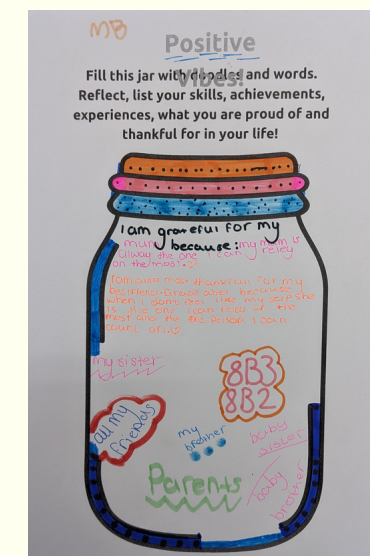 MB
Positive
Vibes!
Fill this jar with doodles and words.
Reflect, list your skills, achievements,
experiences, what you are proud of and
thankful for in your life!
I am grateful for my
mum because: my mum is
alway the one I can reley
on the most.
I am also most thankful for my
because
when I don't feel like my self she
is the one I can rely on the
most and the the person I can
count on.
my sister
8B3
8B2
all my
friends
my
brother
baby
sister
Parents
baby
brother